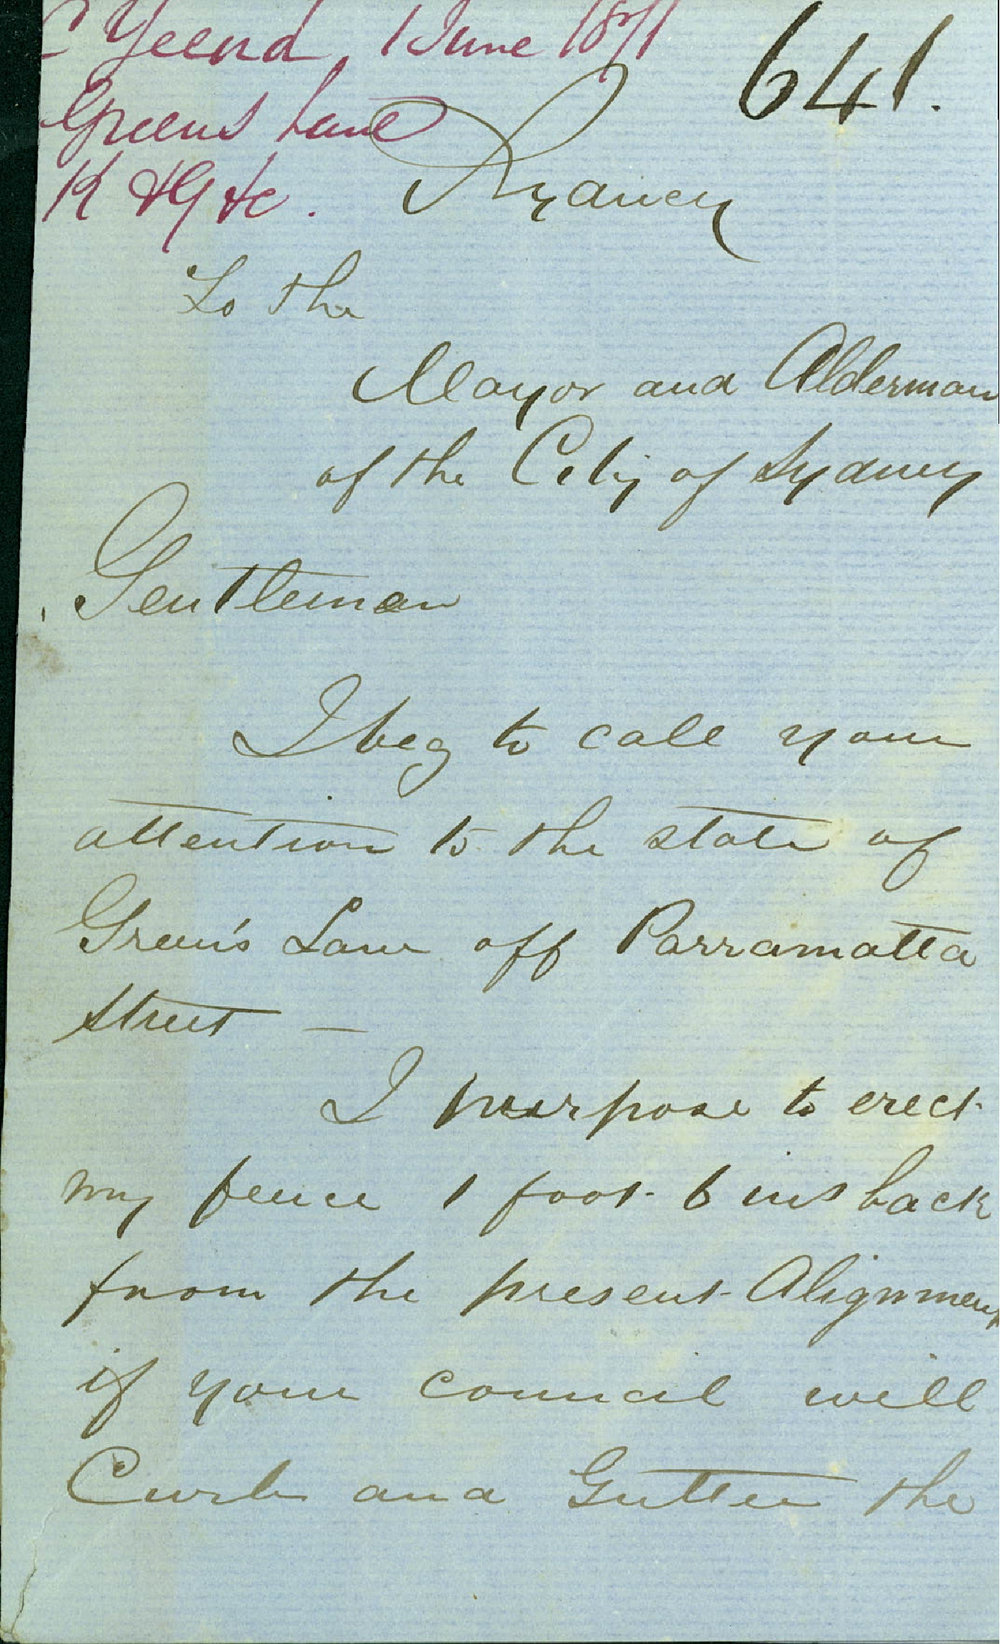 C Yeend 1 June 1871
641.
Greens Lane
K & G &c.
Sydney
To the
Mayor and Alderman
of the City of Sydney
Gentleman
I beg to call your
attention to the state of
Green's Lane off Parramatta
Street —
I purpose to erect
my fence 1 foot 6 ins back
from the present Alignment
if your council will
Curb and Gutter the